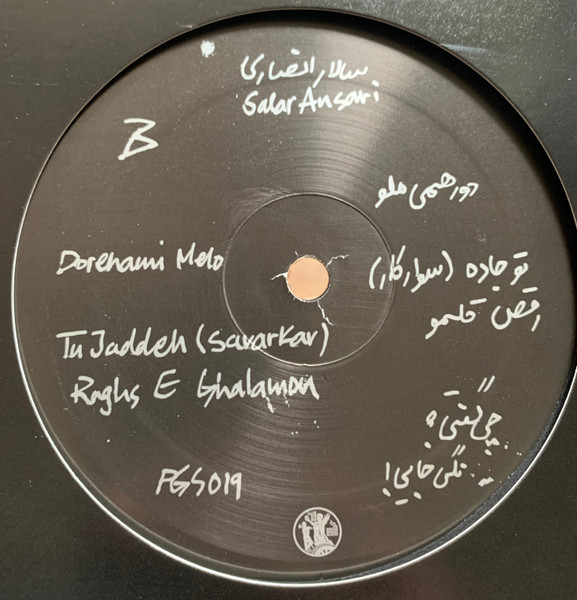 سالار انصاری
Salar Ansari
B
دورهمی ملو
Dorehami Melo
تو جاده (سوارکار)
Tu Jaddeh (Savarkar)
رقص قلمو
Raghs E Ghalamou
"چی گفتی؟
نگی جایی!
PGS019